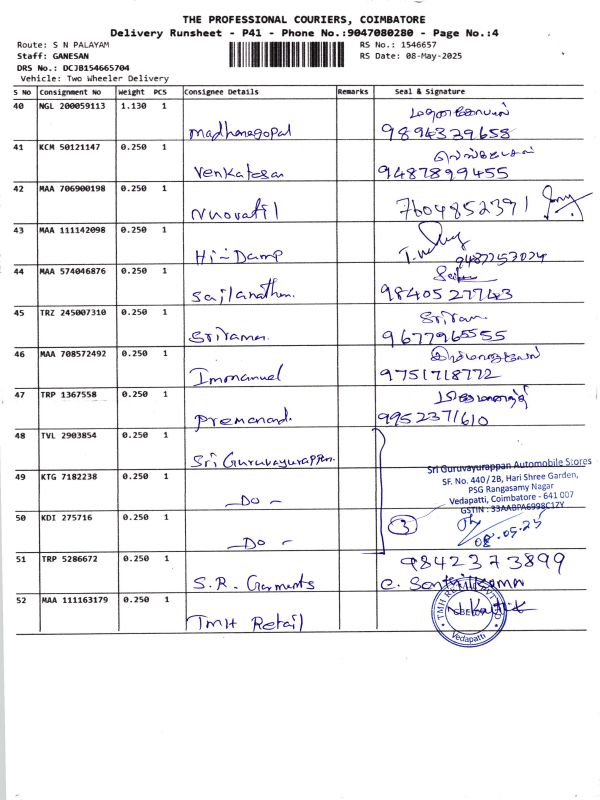 THE PROFESSIONAL COURIERS, COIMBATORE
Delivery Runsheet - P41 - Phone No.:9047080280 - Page No.:4
Route: S N PALAYAM
RS No.: 1546657
Staff: GANESAN
RS Date: 08-May-2025
DRS No.: DCJB154665704
Vehicle: Two Wheeler Delivery
S No Consignment No Weight PCS Consignee Details Remarks Seal & Signature
40 NGL 200059113 1.130 1
Madhanagopal 9894329658
41 KCM 50121147 0.250 1
Venkatesan 9487899455
42 MAA 706900198 0.250 1
Nuovatil 7604852391
43 MAA 111142098 0.250 1
Hi-Damp 9487253024
44 MAA 574046876 0.250 1
Sailanathan. 9840527743
45 TRZ 245007310 0.250 1
Sriram.
Sriraman. 9677965555
46 MAA 708572492 0.250 1
Immanuel 9751718772
47 TRP 1367558 0.250 1
Premanand. 9952371610
48 TVL 2903854 0.250 1
Sri Guruvayurappan.
Sri Guruvayurappan Automobile Stores
49 KTG 7182238 0.250 1
SF. No. 440/2B, Hari Shree Garden,
PSG Rangasamy Nagar
Vedapatti, Coimbatore - 641 007
GSTIN : 33AABPA6998C1ZY
- Do -
50 KDI 275716 0.250 1
3
08.05.25
- Do -
51 TRP 5286672 0.250 1
9842373899
S.R. Garments
52 MAA 111163179 0.250 1
TMH Retail
Vedapatti